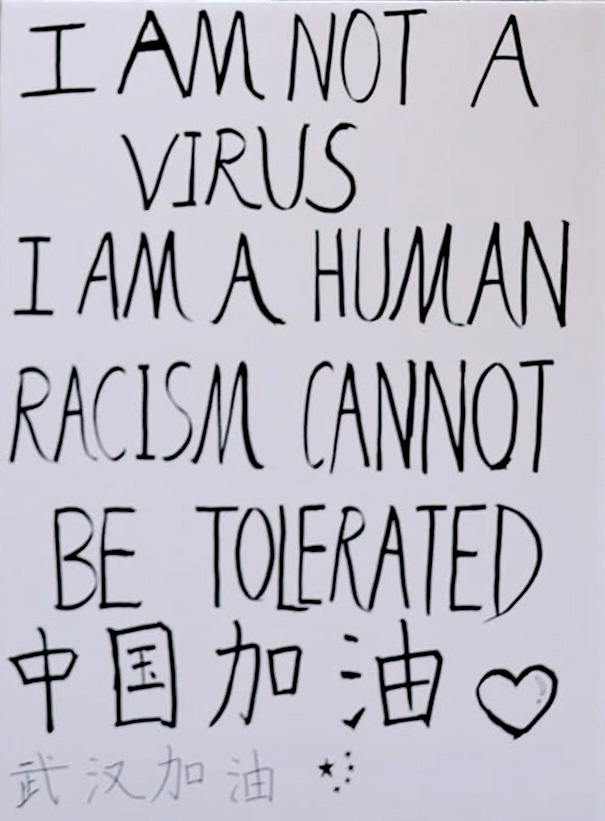 I AM NOT A
VIRUS
I AM A HUMAN
RACISM CANNOT
BE TOLERATED
中国加油
武汉加油